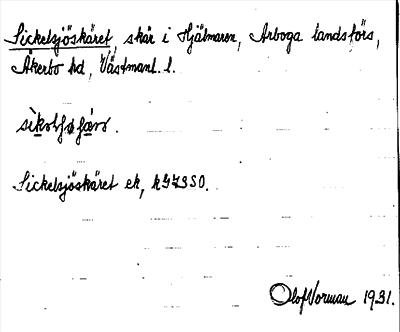 Sickelsjöskäret, skär i Hjälmaren, Arboga landsförs,
Åkerbo hd, Västmanl. l.
Sickelsjöskäret ek,
Olof Vorman 1931.